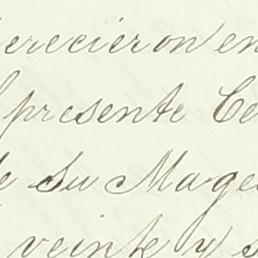 erecieron en
presente Ce
de su Mage
veinte y s